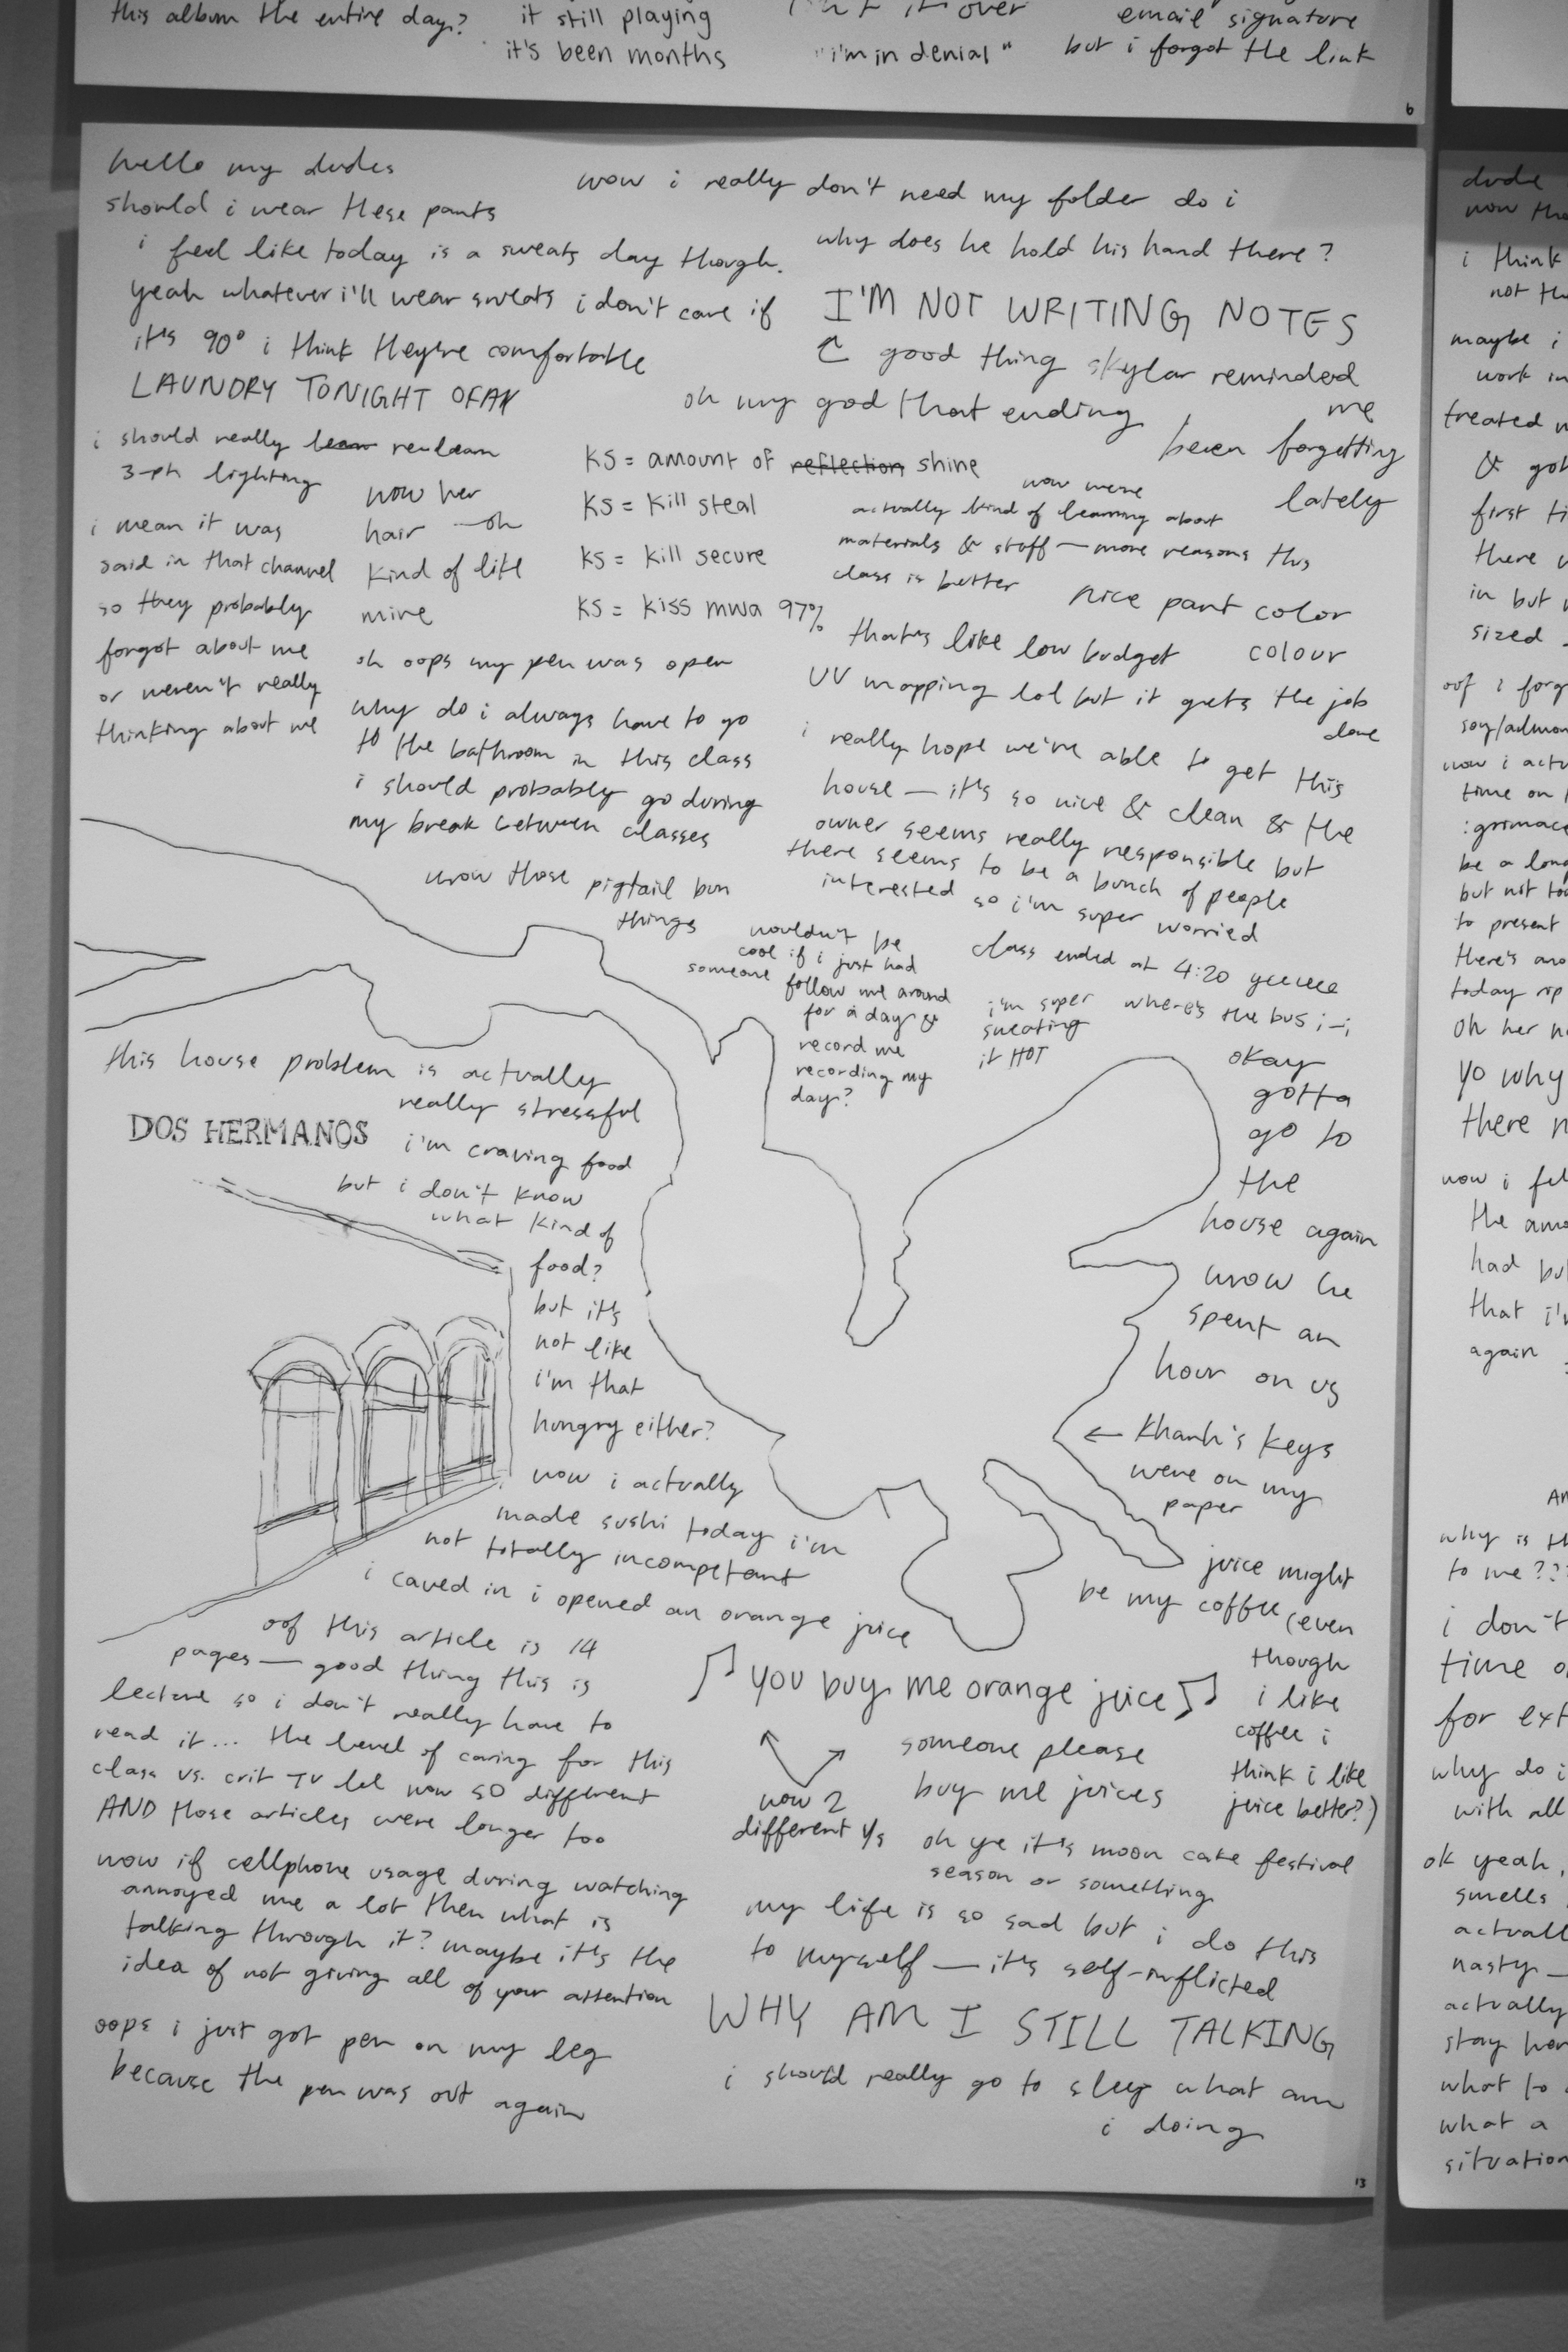 this album the entire day?
it still playing
it's been months
it over
"i'm in denial"
email signature
but i forgot the link
6
hello my dudes
should i wear these pants
i feel like today is a sweats day though.
yeah whatever i'll wear sweats i don't care if
it's 90° i think they're comfortable
LAUNDRY TONIGHT OFAX
i should really learn relearn
3-ph lighting
i mean it was
said in that channel
so they probably
forgot about me
or weren't really
thinking about me
wow her
hair - oh
kind of like
mine
oh oops my pen was open
why do i always have to go
to the bathroom in this class
i should probably go during
my break between classes
wow those pigtail bun
things
wow i really don't need my folder do i
why does he hold his hand there?
I'M NOT WRITING NOTES
good thing skylar reminded
me
oh my god that ending
been forgetting
lately
KS = amount of reflection shine
KS = kill steal
KS = kill secure
KS = kiss mwa 97%
wow we're
actually kind of learning about
materials & stuff — more reasons this
class is better
nice pant color
colour
that's like low budget
UV mapping lol but it gets the job
done
i really hope we're able to get this
house — it's so nice & clean & the
owner seems really responsible but
there seems to be a bunch of people
interested so i'm super worried
wouldn't be
cool if i just had
someone follow me around
for a day &
record me
recording my
day?
class ended at 4:20 yeeeee
i'm super
sweating
it HOT
where's the bus ;-;
okay
gotta
go to
the
house again
wow he
spent an
hour on us
← Khanh's keys
were on my
paper
this house problem is actually
really stressful
DOS HERMANOS
i'm craving food
but i don't know
what kind of
food?
but it's
not like
i'm that
hungry either?
wow i actually
made sushi today i'm
not totally incompetent
i caved in i opened an orange juice
juice might
be my coffee (even
though
i like
coffee i
think i like
juice better?)
♫ you buy me orange juice ♫
wow 2
different y's
someone please
buy me juices
oh ye it's moon cake festival
season or something
my life is so sad but i do this
to myself — it's self-inflicted
WHY AM I STILL TALKING
i should really go to sleep what am
i doing
oof this article is 14
pages — good thing this is
lecture so i don't really have to
read it... the level of caring for this
class vs. crit TV lol wow SO different
AND those articles were longer too
wow if cellphone usage during watching
annoyed me a lot then what is
talking through it? maybe it's the
idea of not giving all of your attention
oops i just got pen on my leg
because the pen was out again
13
dude
now
i think
not
maybe i
work in
treated
& got
first
there
in but
sized
oof i
now i
time on
be a long
but not too
to present
there's
today rip
oh her
yo why
there
wow i
the
had
that i'm
again
why is
to me???
i don't
time
for
why do i
with all
ok yeah,
smells
nasty —
actually
stay
what to
what a
situation